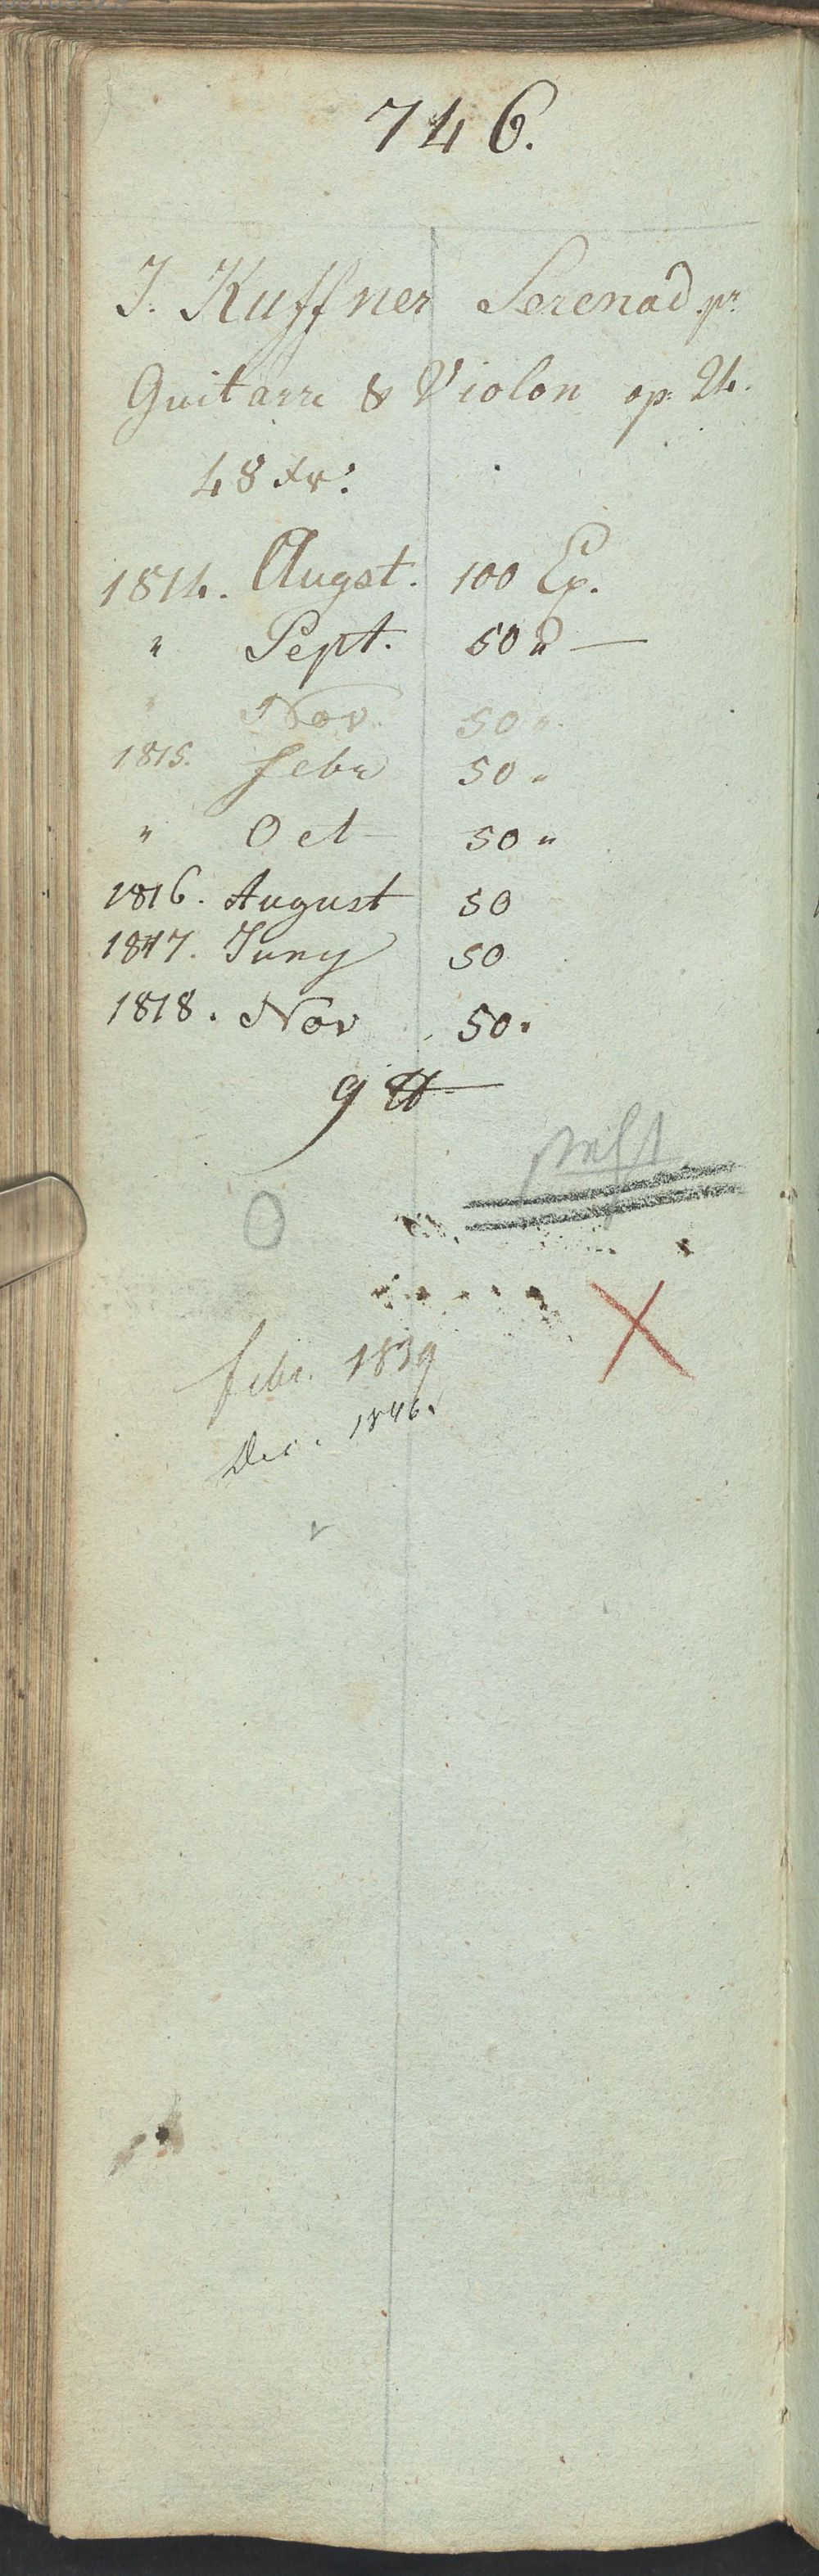 746.
J. Kuffner Serenad. pr
Guitarre & Violon op. 24.
48 Xr.
1814. Augst. 100 Ex.
" Sept. 50 " —
" Nov. 50 "
1815. Febr 50 "
" Oct 50 "
1816. August 50
1817. Juny 50
1818. Nov 50 "
9 ℔
O
X
febr. 1839
Dec. 1846.